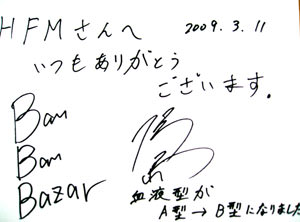 HFMさんへ
いつもありがとう
ございます。
2009.3.11
Bom
Bom
Bazar
血液型が
A型→B型になりました